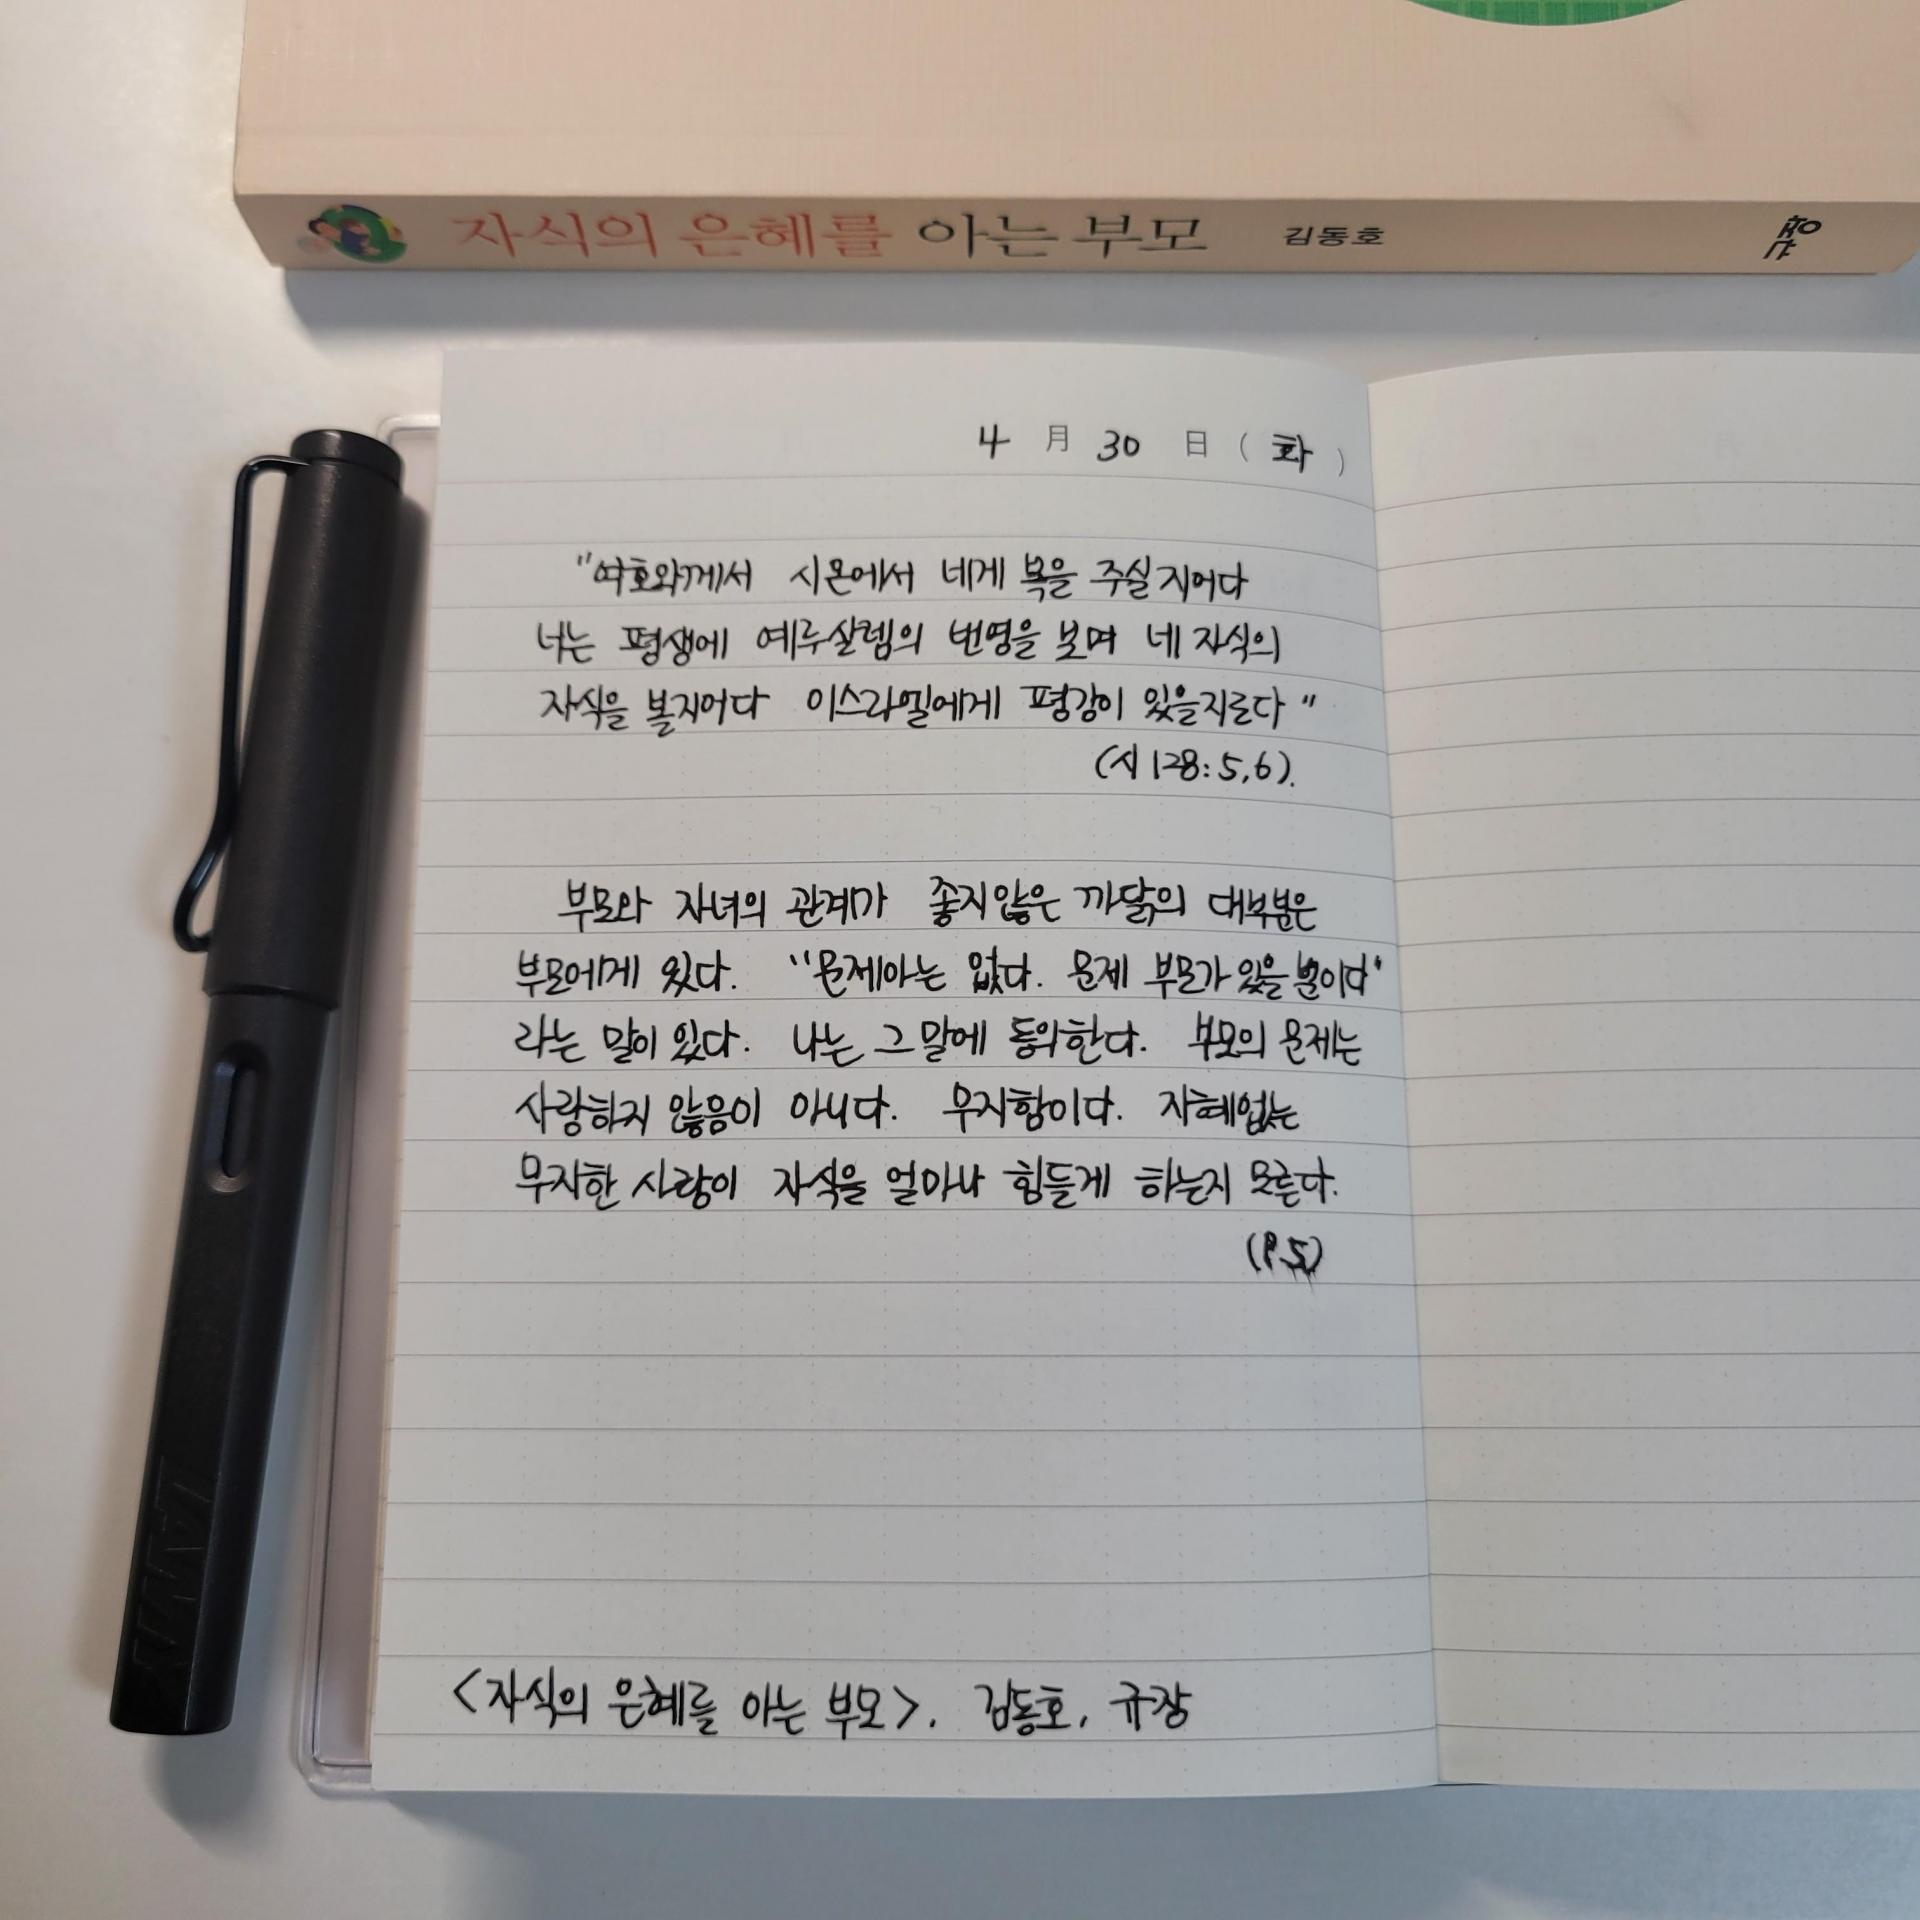 자식의 은혜를 아는 부모 김동호 규장
4 月 30 日 ( 화 )
"여호와께서 시온에서 네게 복을 주실지어다
너는 평생에 예루살렘의 번영을 보며 네 자식의
자식을 볼지어다 이스라엘에게 평강이 있을지로다"
(시 128:5,6).
부모와 자녀의 관계가 좋지않은 까닭의 대부분은
부모에게 있다. "문제아는 없다. 문제 부모가 있을 뿐이다"
라는 말이 있다. 나는 그 말에 동의한다. 부모의 문제는
사랑하지 않음이 아니다. 무지함이다. 지혜없는
무지한 사랑이 자식을 얼마나 힘들게 하는지 모른다.
(P.5)
<자식의 은혜를 아는 부모>. 김동호, 규장
LAMY